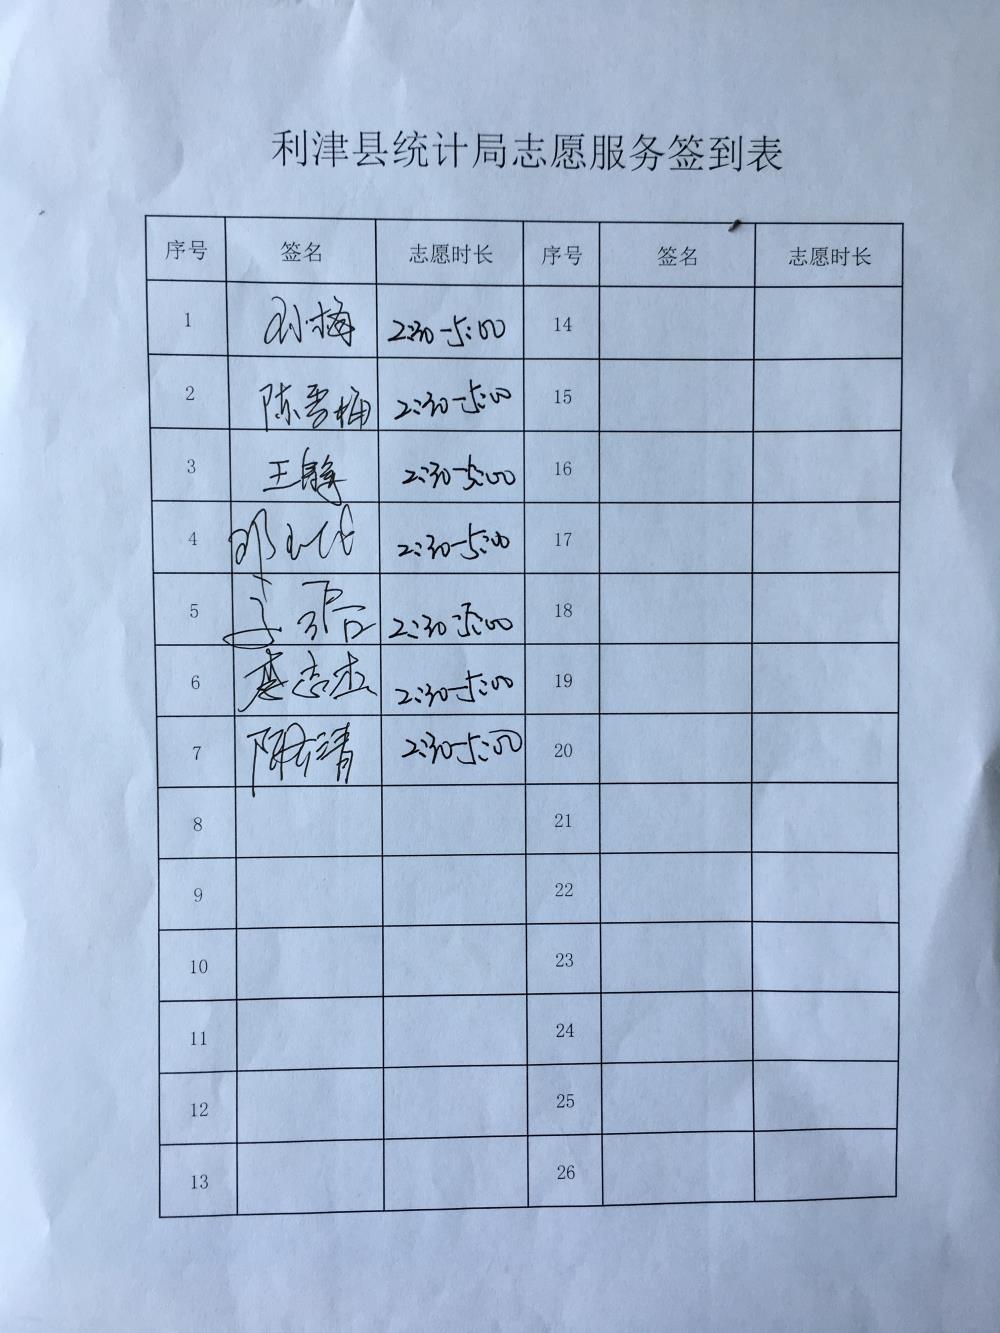 利津县统计局志愿服务签到表
序号 签名 志愿时长 序号 签名 志愿时长
1 孙梅 2:30-5:00 14
2 陈雪梅 2:30-5:00 15
3 王静 2:30-5:00 16
4 2:30-5:00 17
5 2:30-5:00 18
6 志杰 2:30-5:00 19
7 2:30-5:00 20
8 21
9 22
10 23
11 24
12 25
13 26